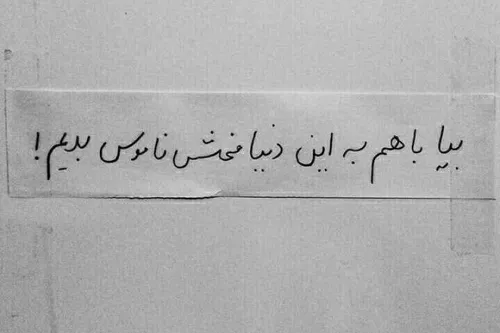 بیا با هم به این دنیا فحش ناموس بدیم!